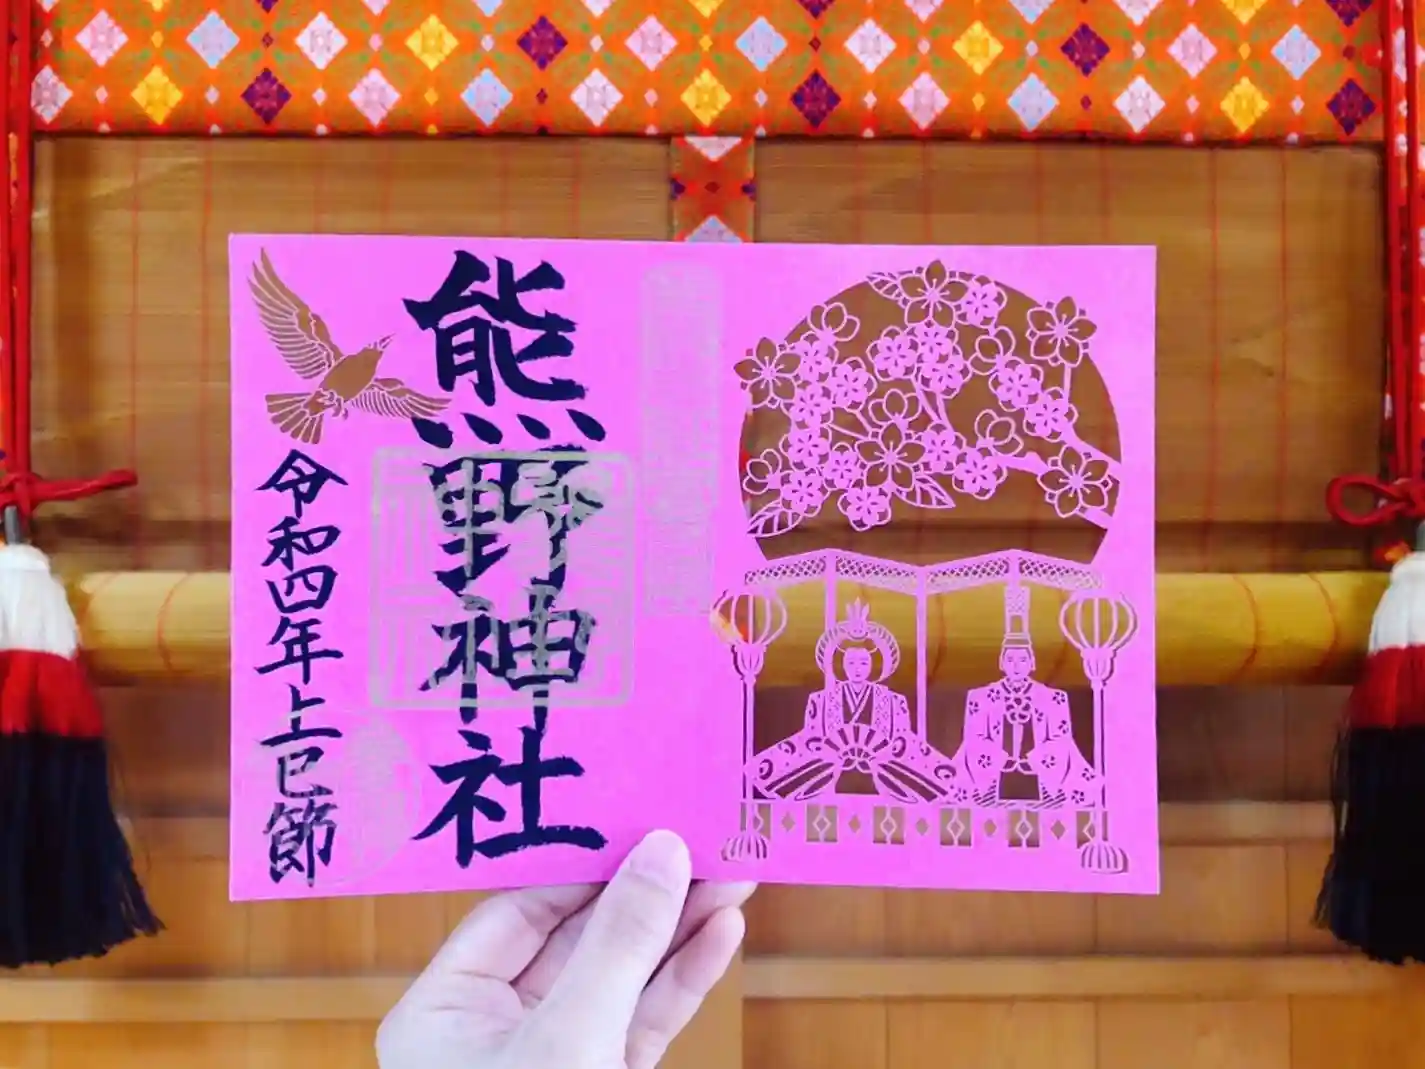 熊野神社
令和四年上巳節